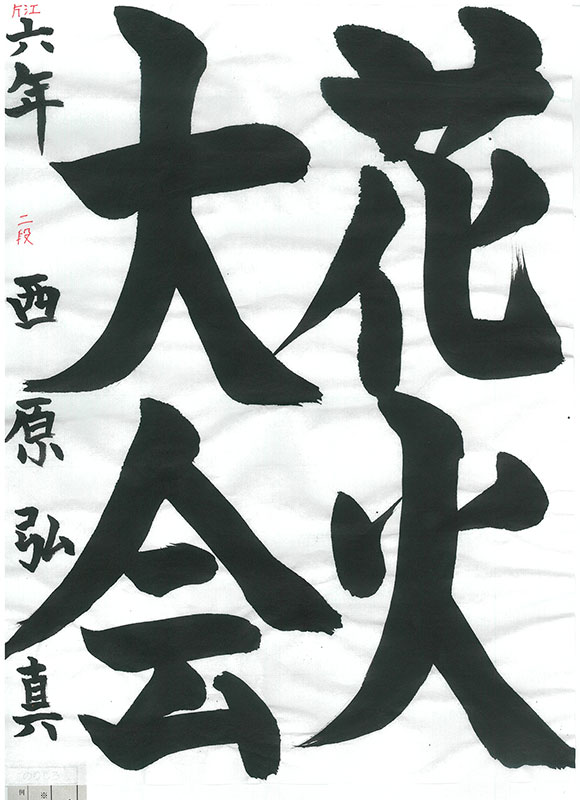 花火
大会
片江
六年
二段
西原弘真
例
※